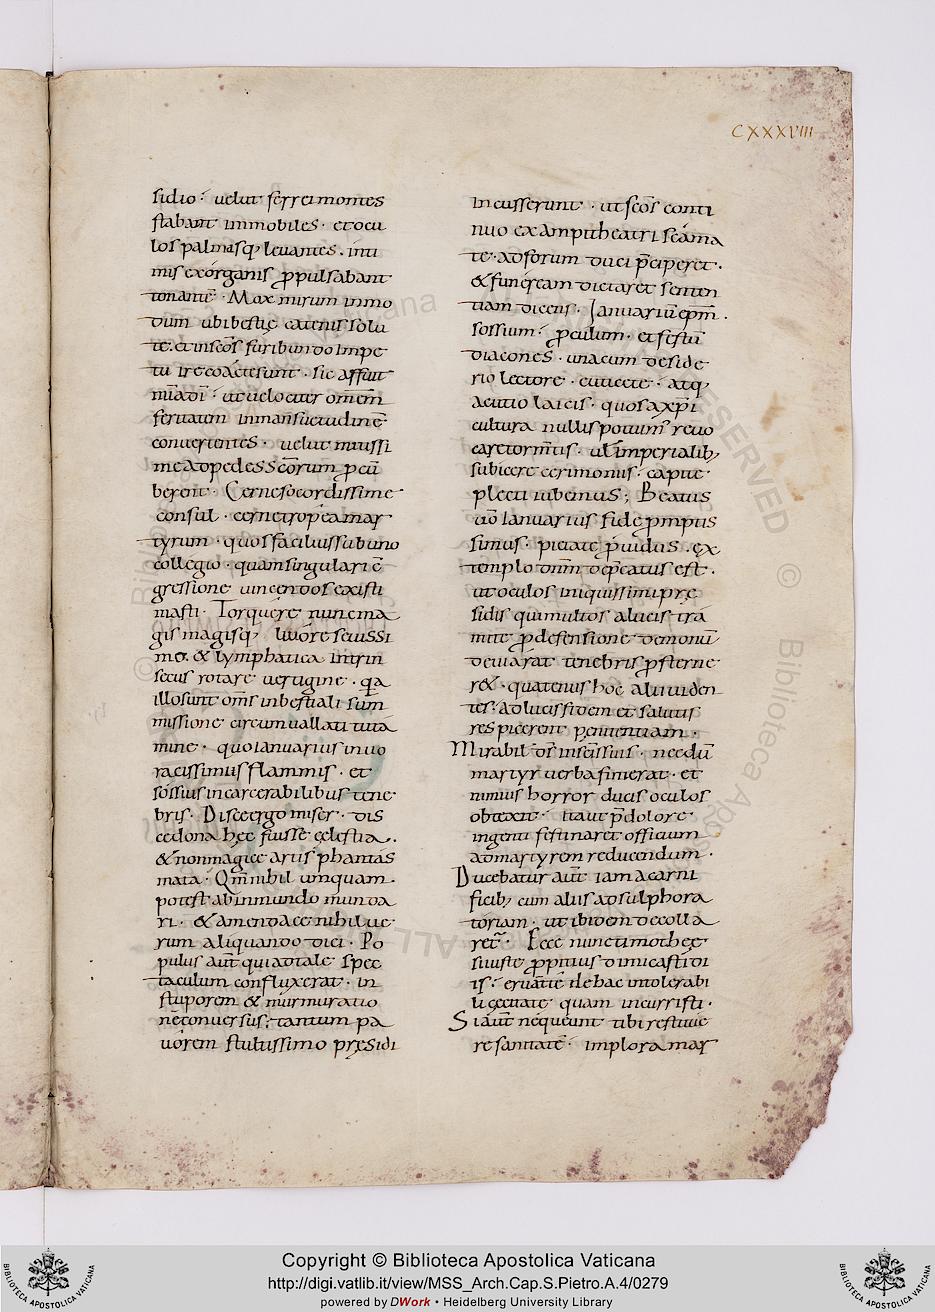 CXXXVIII
sidio. velut ferrei montes
stabant immobiles. et ocu
los palmasq; levantes. inti
mis ex organis p̱pulsabant
tonantē. Mox mirum in mo
dum ubi bestię catenis solu
tę. et in sc̄os furibundo impe
tu ire coactę sunt. sic affuit
mīa dī. ut velociter om̄em
feritatem in mansuetudinē
convertentes. velut miussi
me ad pedes sc̄orum p̱cū
berent. Cerne socordissime
consul. cerne tropea mar
tyrum. quos facilius sub uno
collegio. quam singulari ē
gressione vincendos existi
masti. Torquere nunc ma
gis magisq; livore sevissi
me. & lymphatica intrin
secus rotare vertigine. q̄a
illos unt om̄s in bestiali sum
missione circumvallati tuta
mine. quo ianuarius in vo
racissimis flammis. et
sossius in carcerabilibus tene
bris. Disce ergo miser. dis
ce dona hęc fuisse cęlestia.
& non magicę artis phantas
mata. Qm̄ nihil umquam
potest ab inmundo munda
ri. & a mendace nihil ve
rum aliquando dici. Po
pulus aūt qui ad tale spec
taculum confluxerat. in
stuporem & murmuratio
nē conversus; tantum pa
vorem stultissimo pręsidi
incusserunt. ut sc̄os conti
nuo ex ampitheatri scāma
te. ad forum duci p̄ciperet.
& funeream dictaret senten
tiam dicens. Ianuariū ep̄m.
sossium. p̱culum. et festū
diacones. una cum deside
rio lectore. euticete. atq;
acutio laicis. quos a xp̄i
cultura nullis potuim̄ revo
care tormīis. ul̄ imperialib;
subicere cerimoniis. capite
plecti iubemus; Beatus
v̄o Ianuarius fide p̱mptis
simus. pietate p̱vidus. ex
templo dn̄m dep̄catus est.
ut oculos iniquissimi prę
sidis qui multos a lucis trā
mite p̱ defensione demonū
deviarat tenebris p̱sterne
r&. quatenus hoc alii viden
tes. ad lucis fidem et salutis
respicerent penitentiam.
Mirabil dr̄ insensius. necdū
martyr verba finierat. et
nimius horror ducis oculos
obtexit. ita ut p̄ dolore
ingenti festinaret officium
ad martyrem reducendum.
Ducebatur aūt iam a carni
ficib; cum aliis ad sulphora
toriam. ut ibidem decolla
ret. Ecce nunc timotheę
si iuste p̱pitius dimicasti di
is. eruantē de hac intolerabi
li cęcitate quam incurristi.
Si aūt nequeunt tibi restitue
re sanitatē. implora mar
Copyright © Biblioteca Apostolica Vaticana
http://digi.vatlib.it/view/MSS_Arch.Cap.S.Pietro.A.4/0279
powered by DWork • Heidelberg University Library